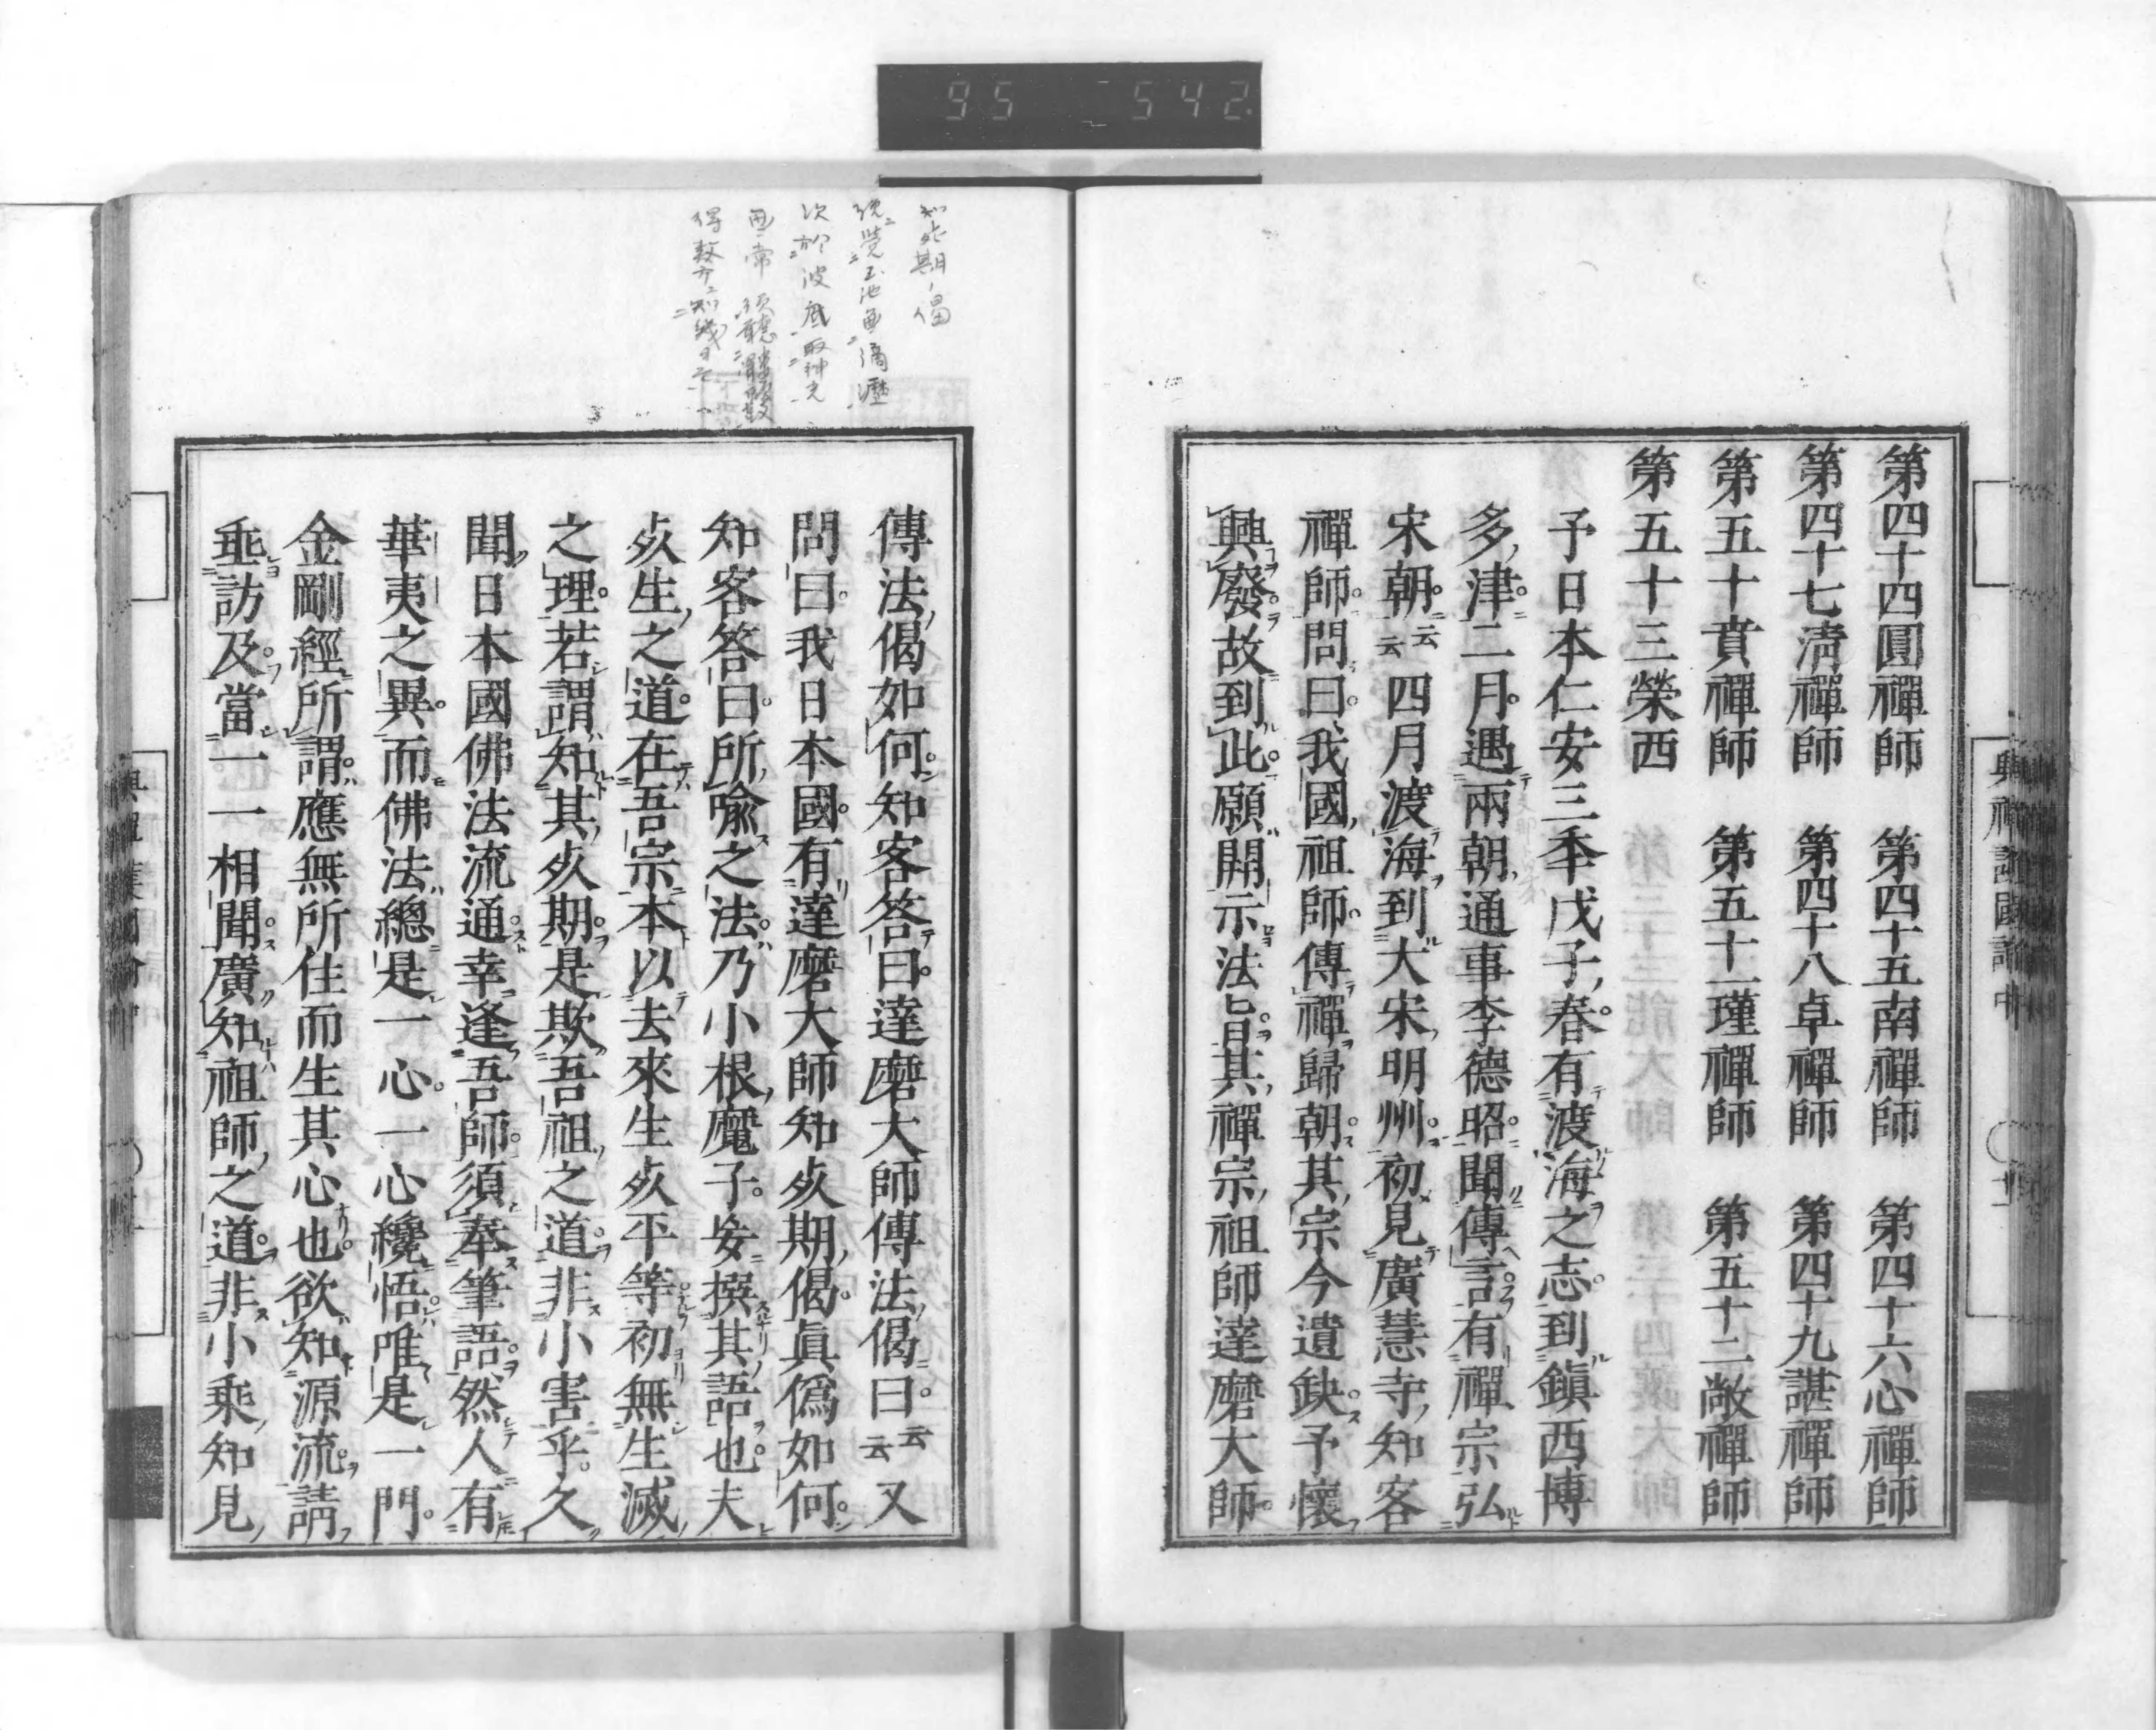 95 542
第四十四圓禪師 第四十五南禪師 第四十六心禪師
第四十七淸禪師 第四十八卓禪師 第四十九諶禪師
第五十賁禪師 第五十一瑾禪師 第五十二敞禪師
第五十三榮西
予日本仁安三秊戊子春有渡海之志到鎭西博
多津二月遇兩朝通事李德昭聞傳言有禪宗弘
宋朝云云四月渡海到大宋明州初見廣慧寺知客
禪師問曰我國祖師傳禪歸朝其宗今遺缺予懷
興廢故到此願開示法旨其禪宗祖師達磨大師
傳法偈如何知客答曰達磨大師傳法偈曰云云又
問曰我日本國有達磨大師知歿期偈眞僞如何
知客答曰所喩之法乃小根魔子妄撰其語也夫
歿生之道在吾宗本以去來生歿平等初無生滅
之理若謂知其歿期是欺吾祖之道非小害乎久
聞日本國佛法流通幸逢吾師須奉筆語然人有
華夷之異而佛法總是一心一心纔悟唯是一門
金剛經所謂應無所住而生其心也欲知源流請
垂訪及當一一相聞廣知祖師之道非小乘知見
興禪護國論中
知死期偈
纔覺玉池無滴瀝
次於波底取神光
無常須聽髏鼓
得數知幾